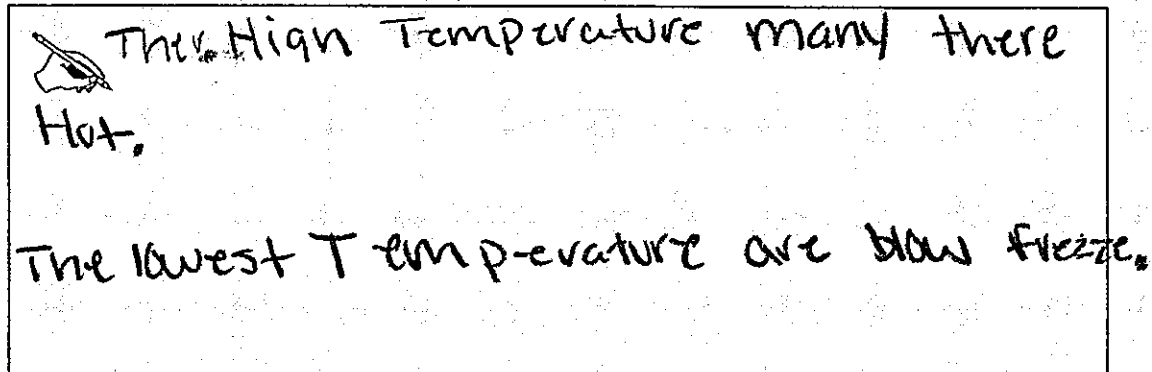 The. High Temperature many there
Hot.
The lowest Temperature are blow frezze.